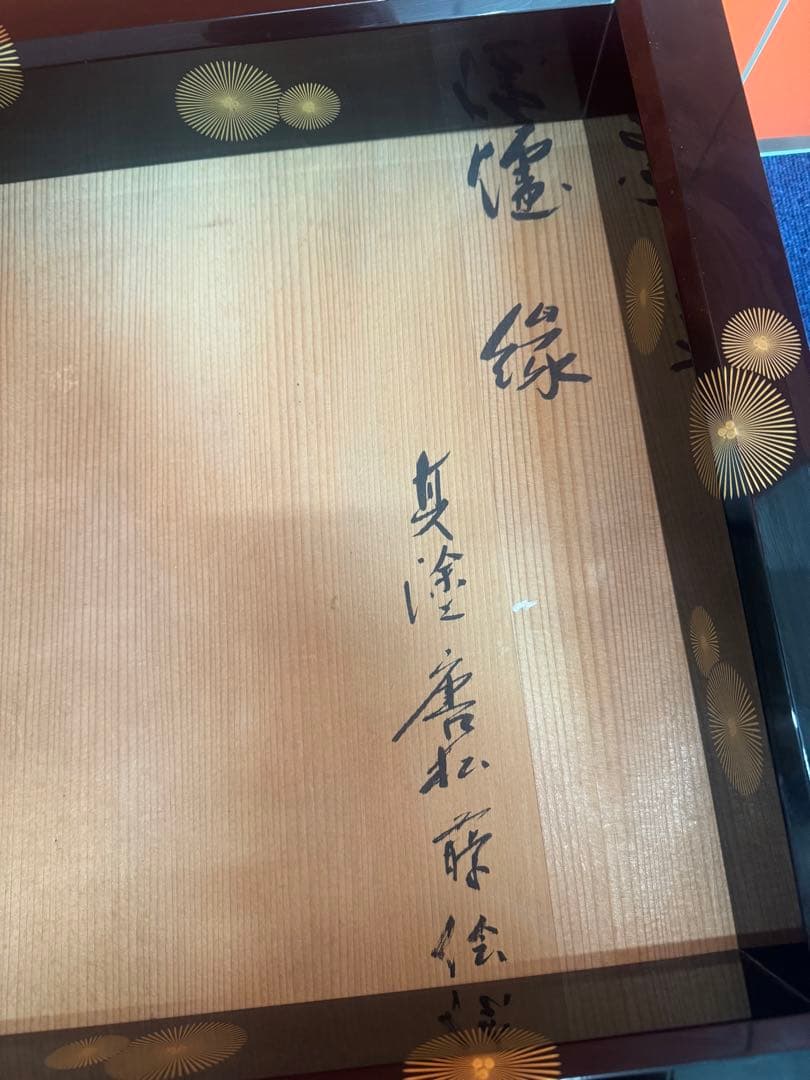 爐縁
真塗唐松蒔絵